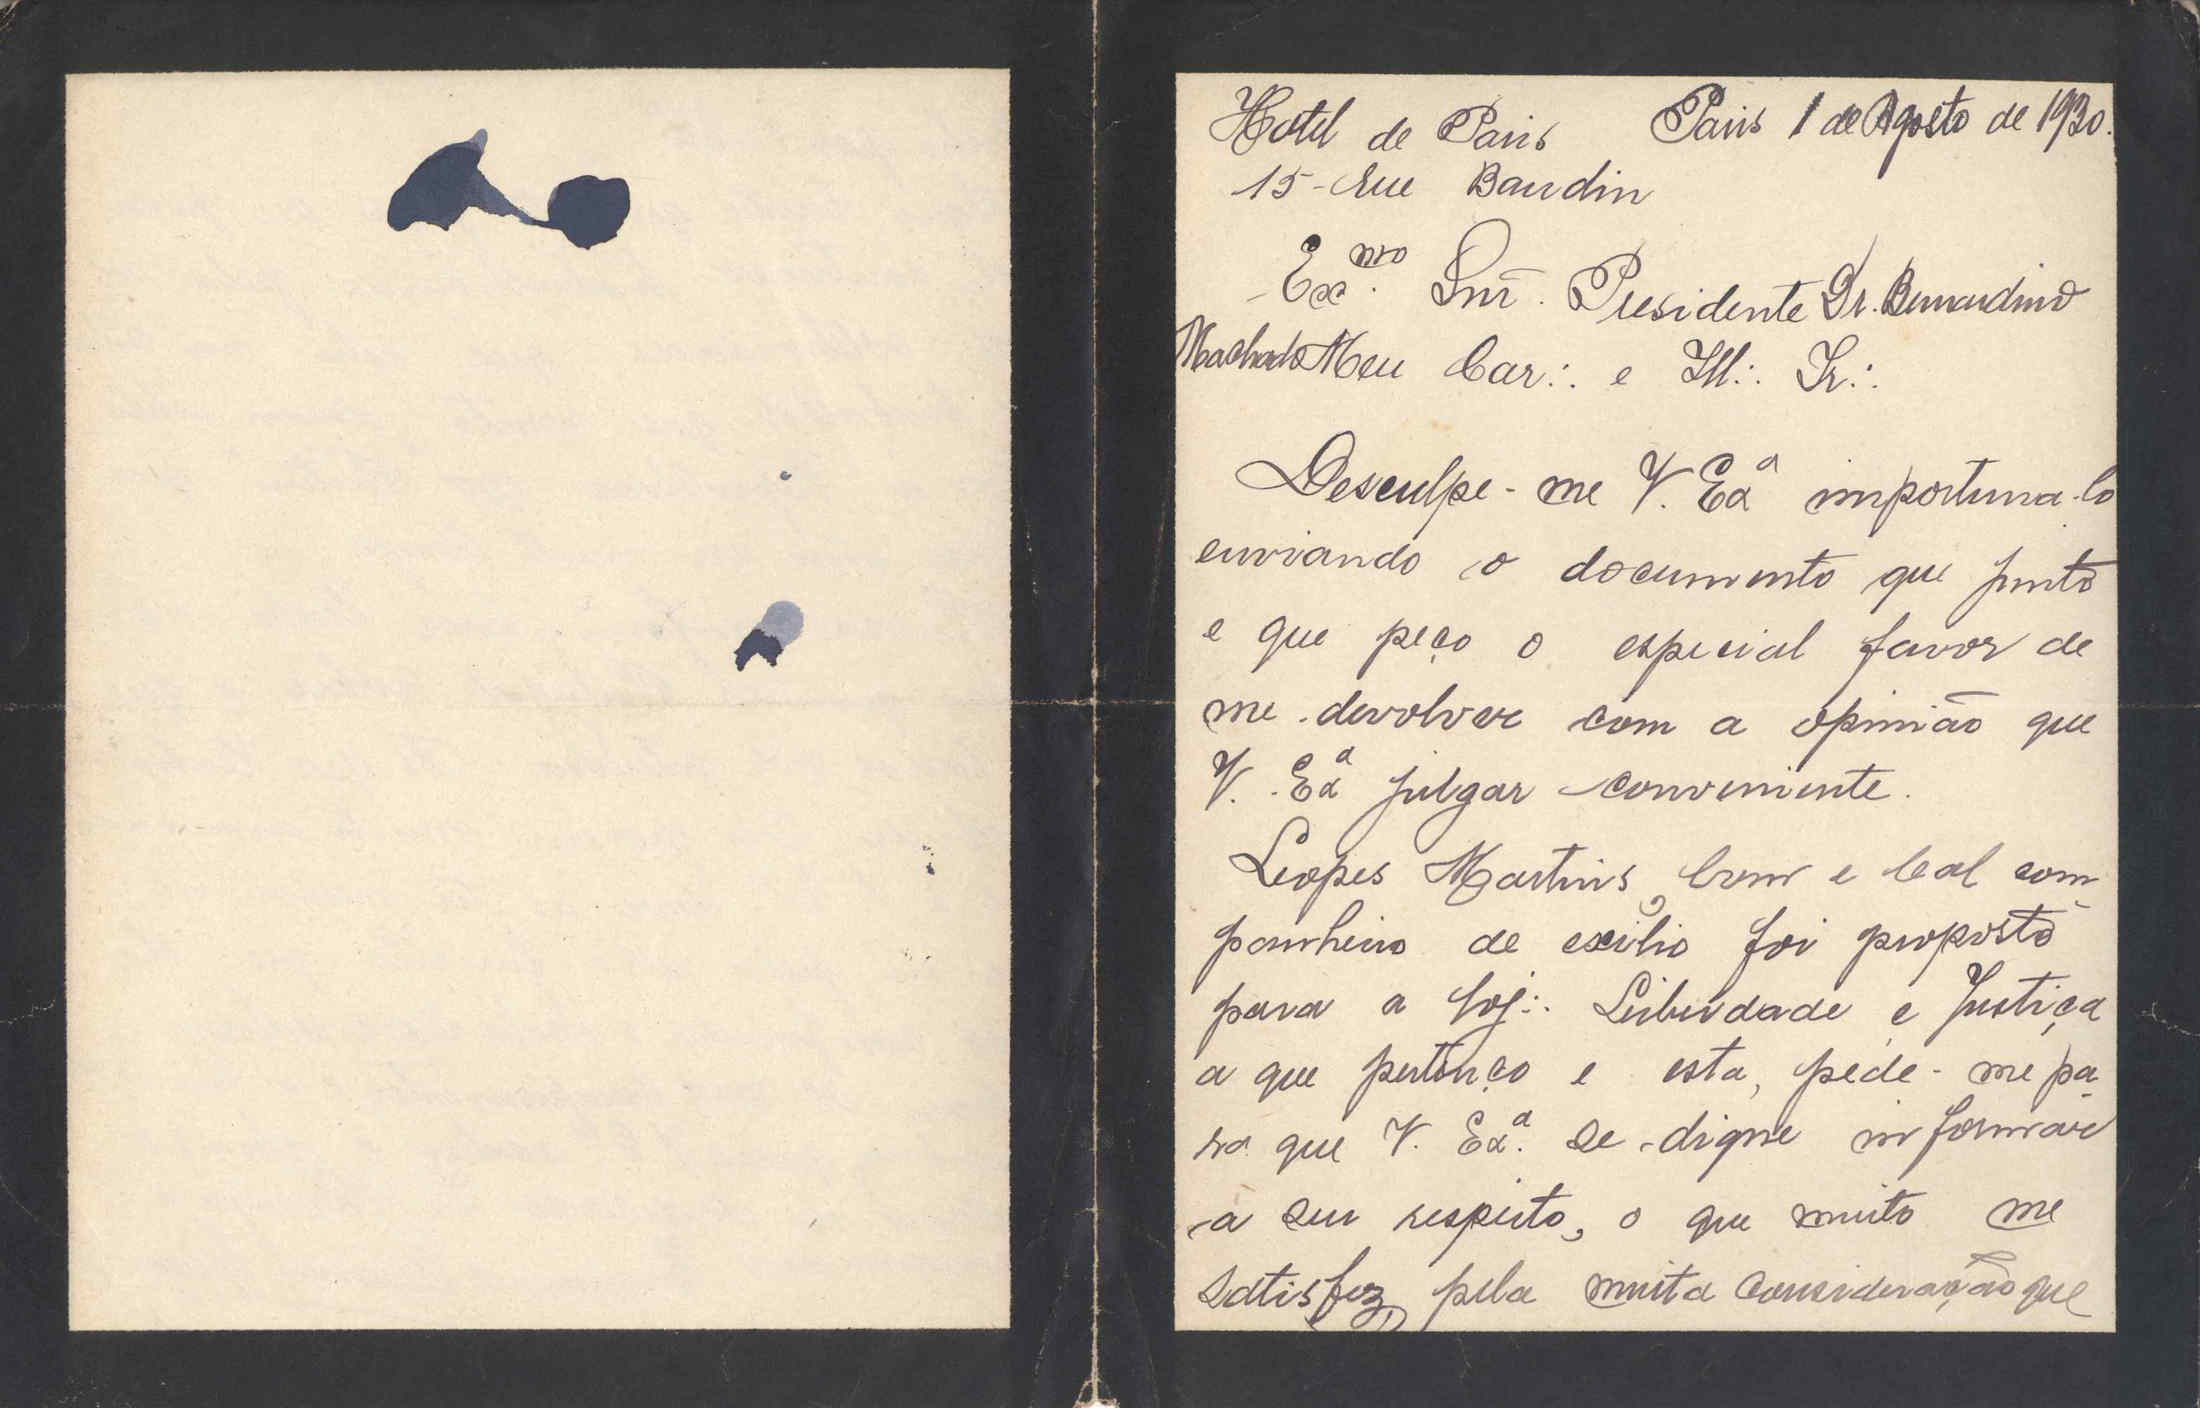 Hotel de Paris Paris 1 de Agosto de 1930.
15 - Rue Baudin
Ex.mo Snr. Presidente Dr. Bernardino
Machado Meu Car∴ e Ill∴ Ir∴
Desculpe-me V. Exª importuna-lo
enviando o documento que junto
e que peço o especial favor de
me devolver com a opinião que
V. Exª julgar conveniente.
Lopes Martins, bom e leal com-
panheiro de exilio foi proposto
para a Loj∴ Liberdade e Justiça
a que pertenço e esta, pede-me pa-
ra que V. Exª. se digne informar
a seu respeito, o que muito me
satisfez, pela muita consideração que